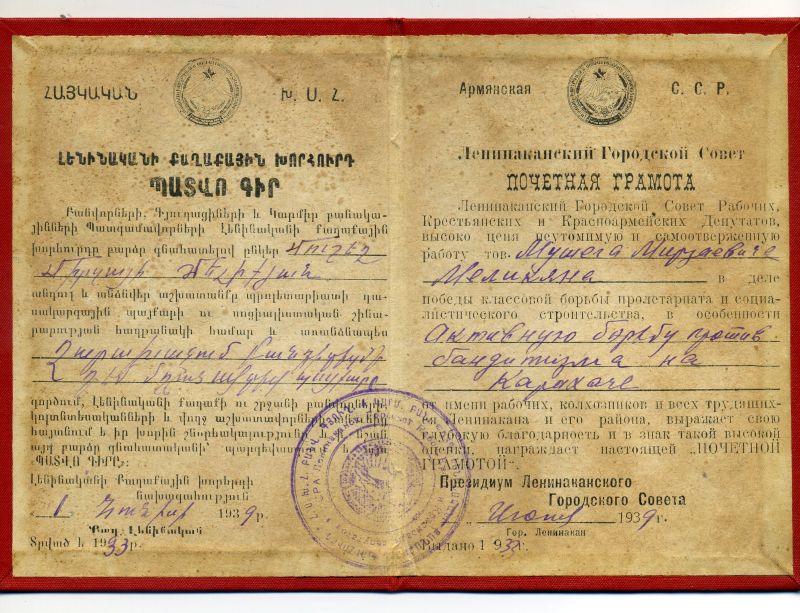 ՀԱՅԿԱԿԱՆ Խ. Ս. Հ.
ԼԵՆԻՆԱԿԱՆԻ ՔԱՂԱՔԱՅԻՆ ԽՈՐՀՈՒՐԴ
ՊԱՏՎՈ ԳԻՐ
Բանվորների, Գյուղացիների և Կարմիր բանակա-
յինների Պատգամավորների Լենինականի Քաղաքային
խորհուրդը բարձր գնահատելով ընկեր Մուշեղ
Միրզայի Մելիքյան
անդուլ և անձնվեր աշխատանքը պրոլետարիատի դա-
սակարգային պայքարի ու սոցիալիստական շինա-
րարության հաղթանակի համար և առանձնապես
գործում, Լենինականի քաղաքի ու շրջանի բանվորների,
կոլտնտեսականների և բոլոր աշխատավորների
հայտնում է իր խորին շնորհակալությունը
այդ բարձր գնահատականի՝
«ՊԱՏՎՈ ԳԻՐԸ»:
Լենինականի Քաղաքային խորհրդի
նախագահություն
1 Հունիսի 1939 թ.
Քաղ. Լենինական
Տրված է 1933 թ.
Армянская С. С. Р.
Ленинаканский Городской Совет
ПОЧЕТНАЯ ГРАМОТА
Ленинаканский Городской Совет Рабочих,
Крестьянских и Красноармейских Депутатов,
высоко ценя неутомимую и самоотверженную
работу тов. Мушега Мирзаевича
Меликяна в деле
победы классовой борьбы пролетариата и социа-
листического строительства, в особенности
Активную борьбу против
бандитизма на
Карахаче
от имени рабочих, колхозников и всех трудящих-
Ленинакана и его района, выражает свою
глубокую благодарность и в знак такой высокой
оценки, награждает настоящей „ПОЧЕТНОЙ
ГРАМОТОЙ“.
Президиум Ленинаканского
Городского Совета
1 Июня 1939 г.
Гор. Ленинакан
Выдано 193 г.